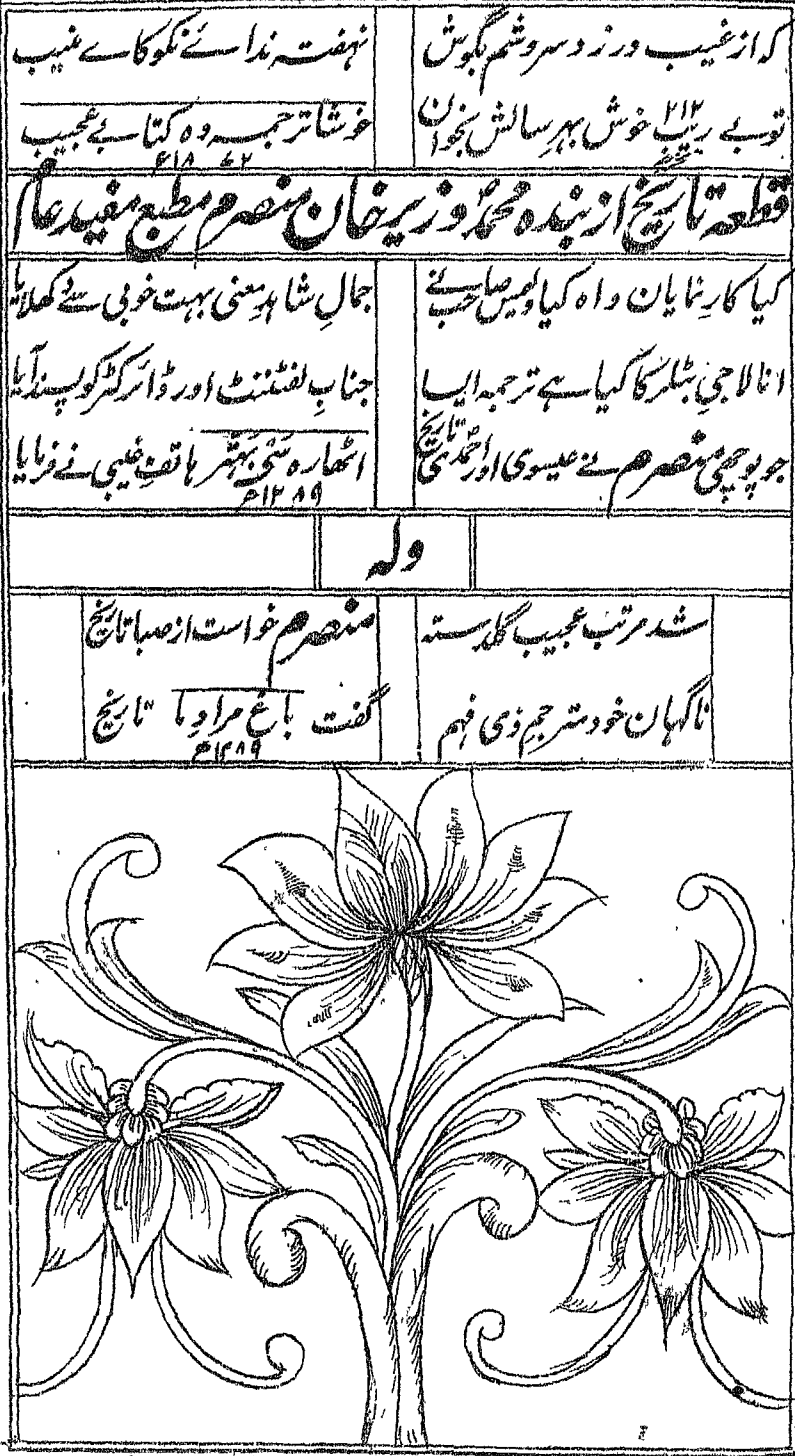 که از غیب ورزد سروشم بگوش نهفته ندائے نکو کاے منیب
تو بے ریب ۲۱۲ خوش بهر سالش بخوان خوشا ترجمه وه کتابے عجیب
۱۸۷۲ء
قطعه تاریخ از بنده محمد وزیر خان منصرم مطبع مفید عام
کیا کارِ نمایان واه کیا ولیمس صاحب نے جمالِ شاہدِ معنی بہت خوبی سے دکھلایا
انالاجیِ بٹلر کا کیا ہے ترجمہ ایسا جنابِ لفٹننٹ اور ڈائرکٹر کو پسند آیا
جو پوچھی منصرم نے عیسوی اور احمدی تاریخ اٹھارہ سَی بہتر ہاتفِ غیبی نے فرمایا
۱۲۸۹ھ
وله
شد مرتب عجیب گلدسته منصرم خواست از صبا تاریخ
ناگهان خود مترجمِ ذی فهم گفت باغِ مرادِ ما تاریخ
۱۲۸۹ھ